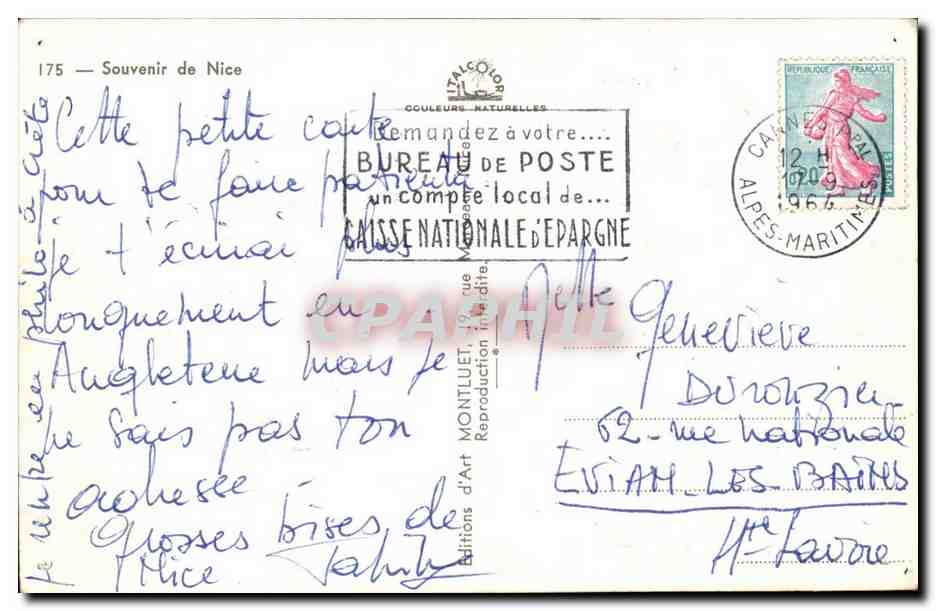 175 — Souvenir de Nice
ITALCOLOR
COULEURS NATURELLES
Demandez à votre....
BUREAU DE POSTE
un compte local de...
CAISSE NATIONALE D'EPARGNE
REPUBLIQUE FRANÇAISE
0,20
POSTES
CANNES PPAL
12 H
1964
ALPES-MARITIMES
Cette petite carte
pour te faire patienter
je t'écrirai plus
longuement en
Angleterre mais je
ne sais pas ton
adresse
Grosses bises de
Nice
je rentre en philo à
Editions d'Art MONTLUET, 19, rue
Reproduction interdite.
CPAPHIL
Melle Geneviève
Duronzier
62 - rue nationale
EVIAN-LES-BAINS
Hte Savoie